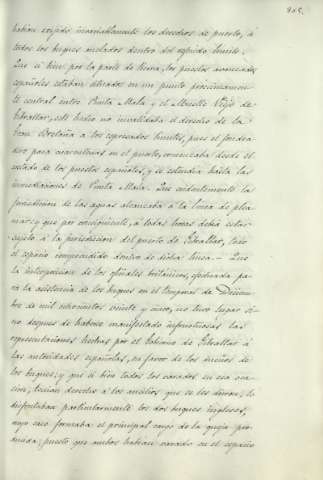 205.
habian exigido invariablemente los derechos de puerto, á
todos los buques anclados dentro del espacio limite.
Que si bien por la parte de tierra, los puestos avanzados
españoles estaban situados en un punto proximamen-
te central entre Punta Mala y el Muelle Viejo de
Gibraltar, este hecho no invalidaba el derecho de la
Gran Bretaña a los expresados limites, pues el fondea-
dero para cuarentenas en el puerto, comenzaba desde el
costado de los puestos españoles, y se estendia hasta las
inmediaciones de Punta Mala. Que evidentemente la
jurisdiccion de las aguas alcanzaba á la linea de plea-
mar; y que por consiguiente, á todas horas debia estar
sujeto a la jurisdiccion del puerto de Gibraltar, todo
el espacio comprendido dentro de dicha linea. — Que
la interposicion de los oficiales británicos, efectuada pa-
ra la asistencia de los buques en el temporal de Diciem-
bre de mil ochocientos veinte y cinco, no tuvo lugar si-
no despues de haberse manifestado infructuosas las
representaciones hechas por el Gobierno de Gibraltar á
las autoridades españolas, en favor de los dueños de
los buques; y que si bien todos los varados en esa oca-
sion, tenian derecho a los auxilios que se les dieron, lo
disfrutaban particularmente los dos buques ingleses,
cuyo caso formaba el principal cargo de la queja pro-
movida; puesto que ambos habian varado en el espacio